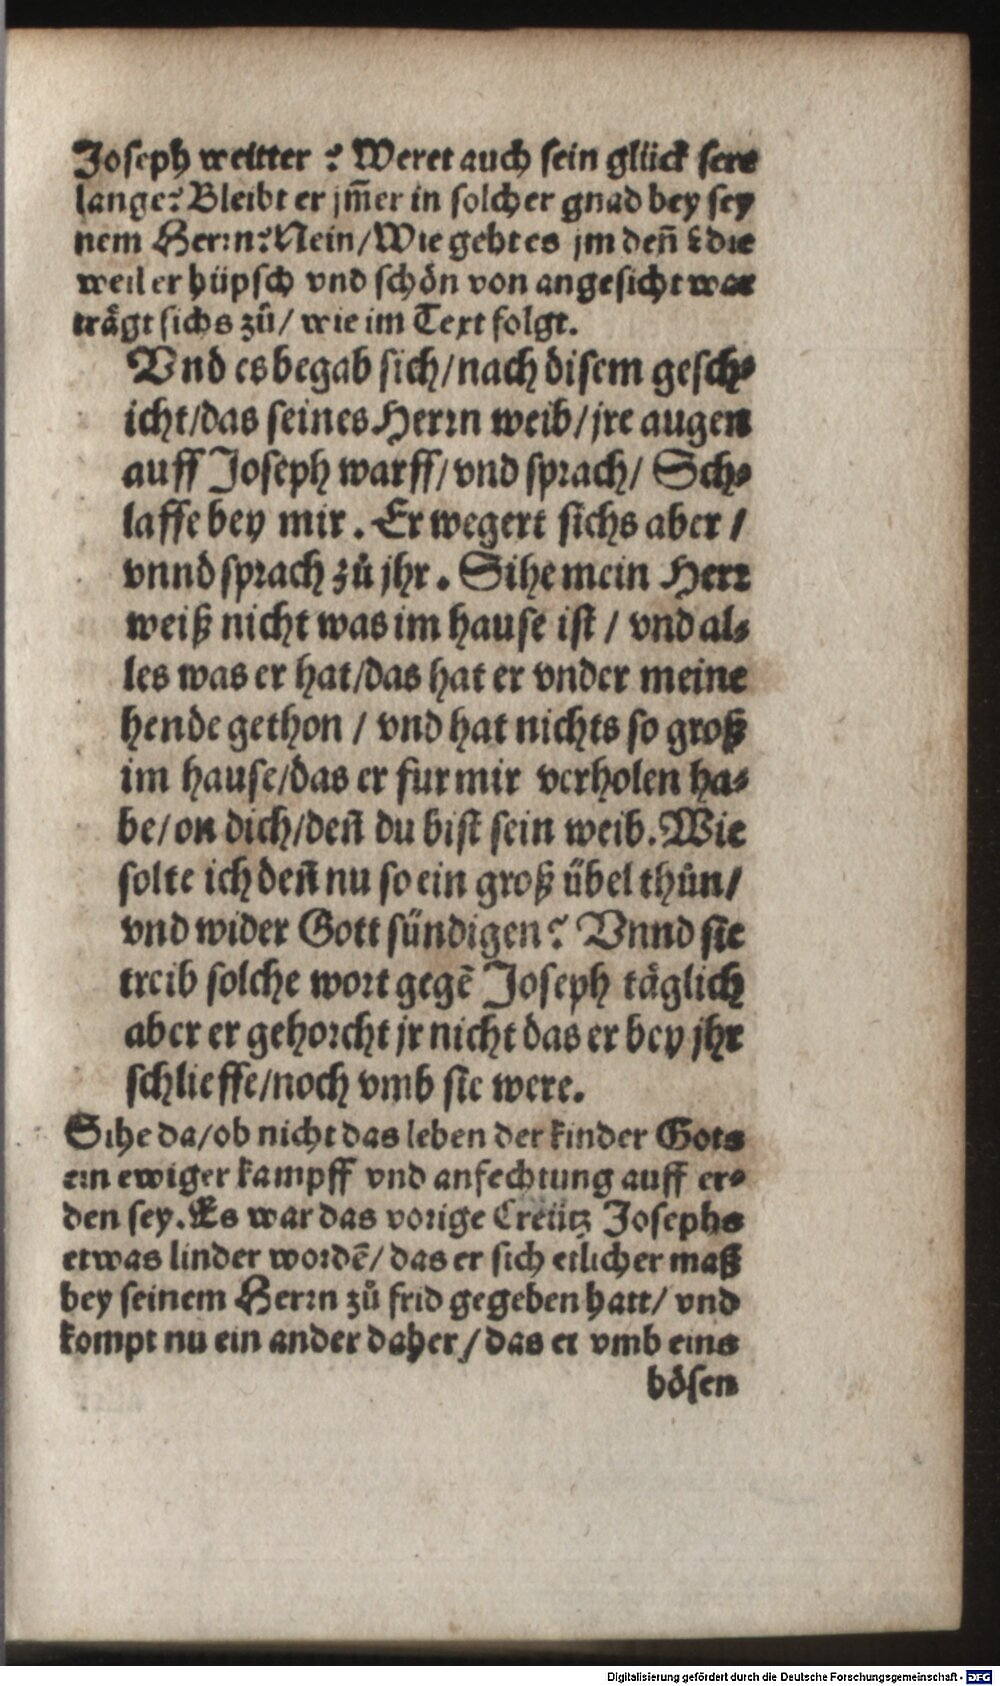 Joseph weitter? Weret auch sein glück sere
lange? Bleibt er jm̃er in solcher gnad bey sey
nem Herrn? Nein/ Wie geht es jm deñ? die
weil er hüpsch vnd schön von angesicht war
trägt sichs zů/ wie im Text folgt.
Vnd es begab sich/ nach disem gesch⸗
icht/ das seines Herrn weib/ jre augen
auff Joseph warff/ vnd sprach/ Sch⸗
laffe bey mir. Er wegert sichs aber/
vnnd sprach zů jhr. Sihe mein Herr
weiß nicht was im hause ist/ vnd al⸗
les was er hat/ das hat er vnder meine
hende gethon/ vnd hat nichts so groß
im hause/ das er fur mir verholen ha⸗
be/ on dich/ deñ du bist sein weib. Wie
solte ich deñ nu so ein groß übel thůn/
vnd wider Gott sündigen? Vnnd sie
treib solche wort gegẽ Joseph täglich
aber er gehorcht jr nicht das er bey jhr
schlieffe/ noch vmb sie were.
Sihe da/ ob nicht das leben der kinder Gots
ein ewiger kampff vnd anfechtung auff er⸗
den sey. Es war das vorige Creütz Josephs
etwas linder wordẽ/ das er sich etlicher maß
bey seinem Herrn zů frid gegeben hatt/ vnd
kompt nu ein ander daher/ das er vmb eins
bösen
Digitalisierung gefördert durch die Deutsche Forschungsgemeinschaft - DFG